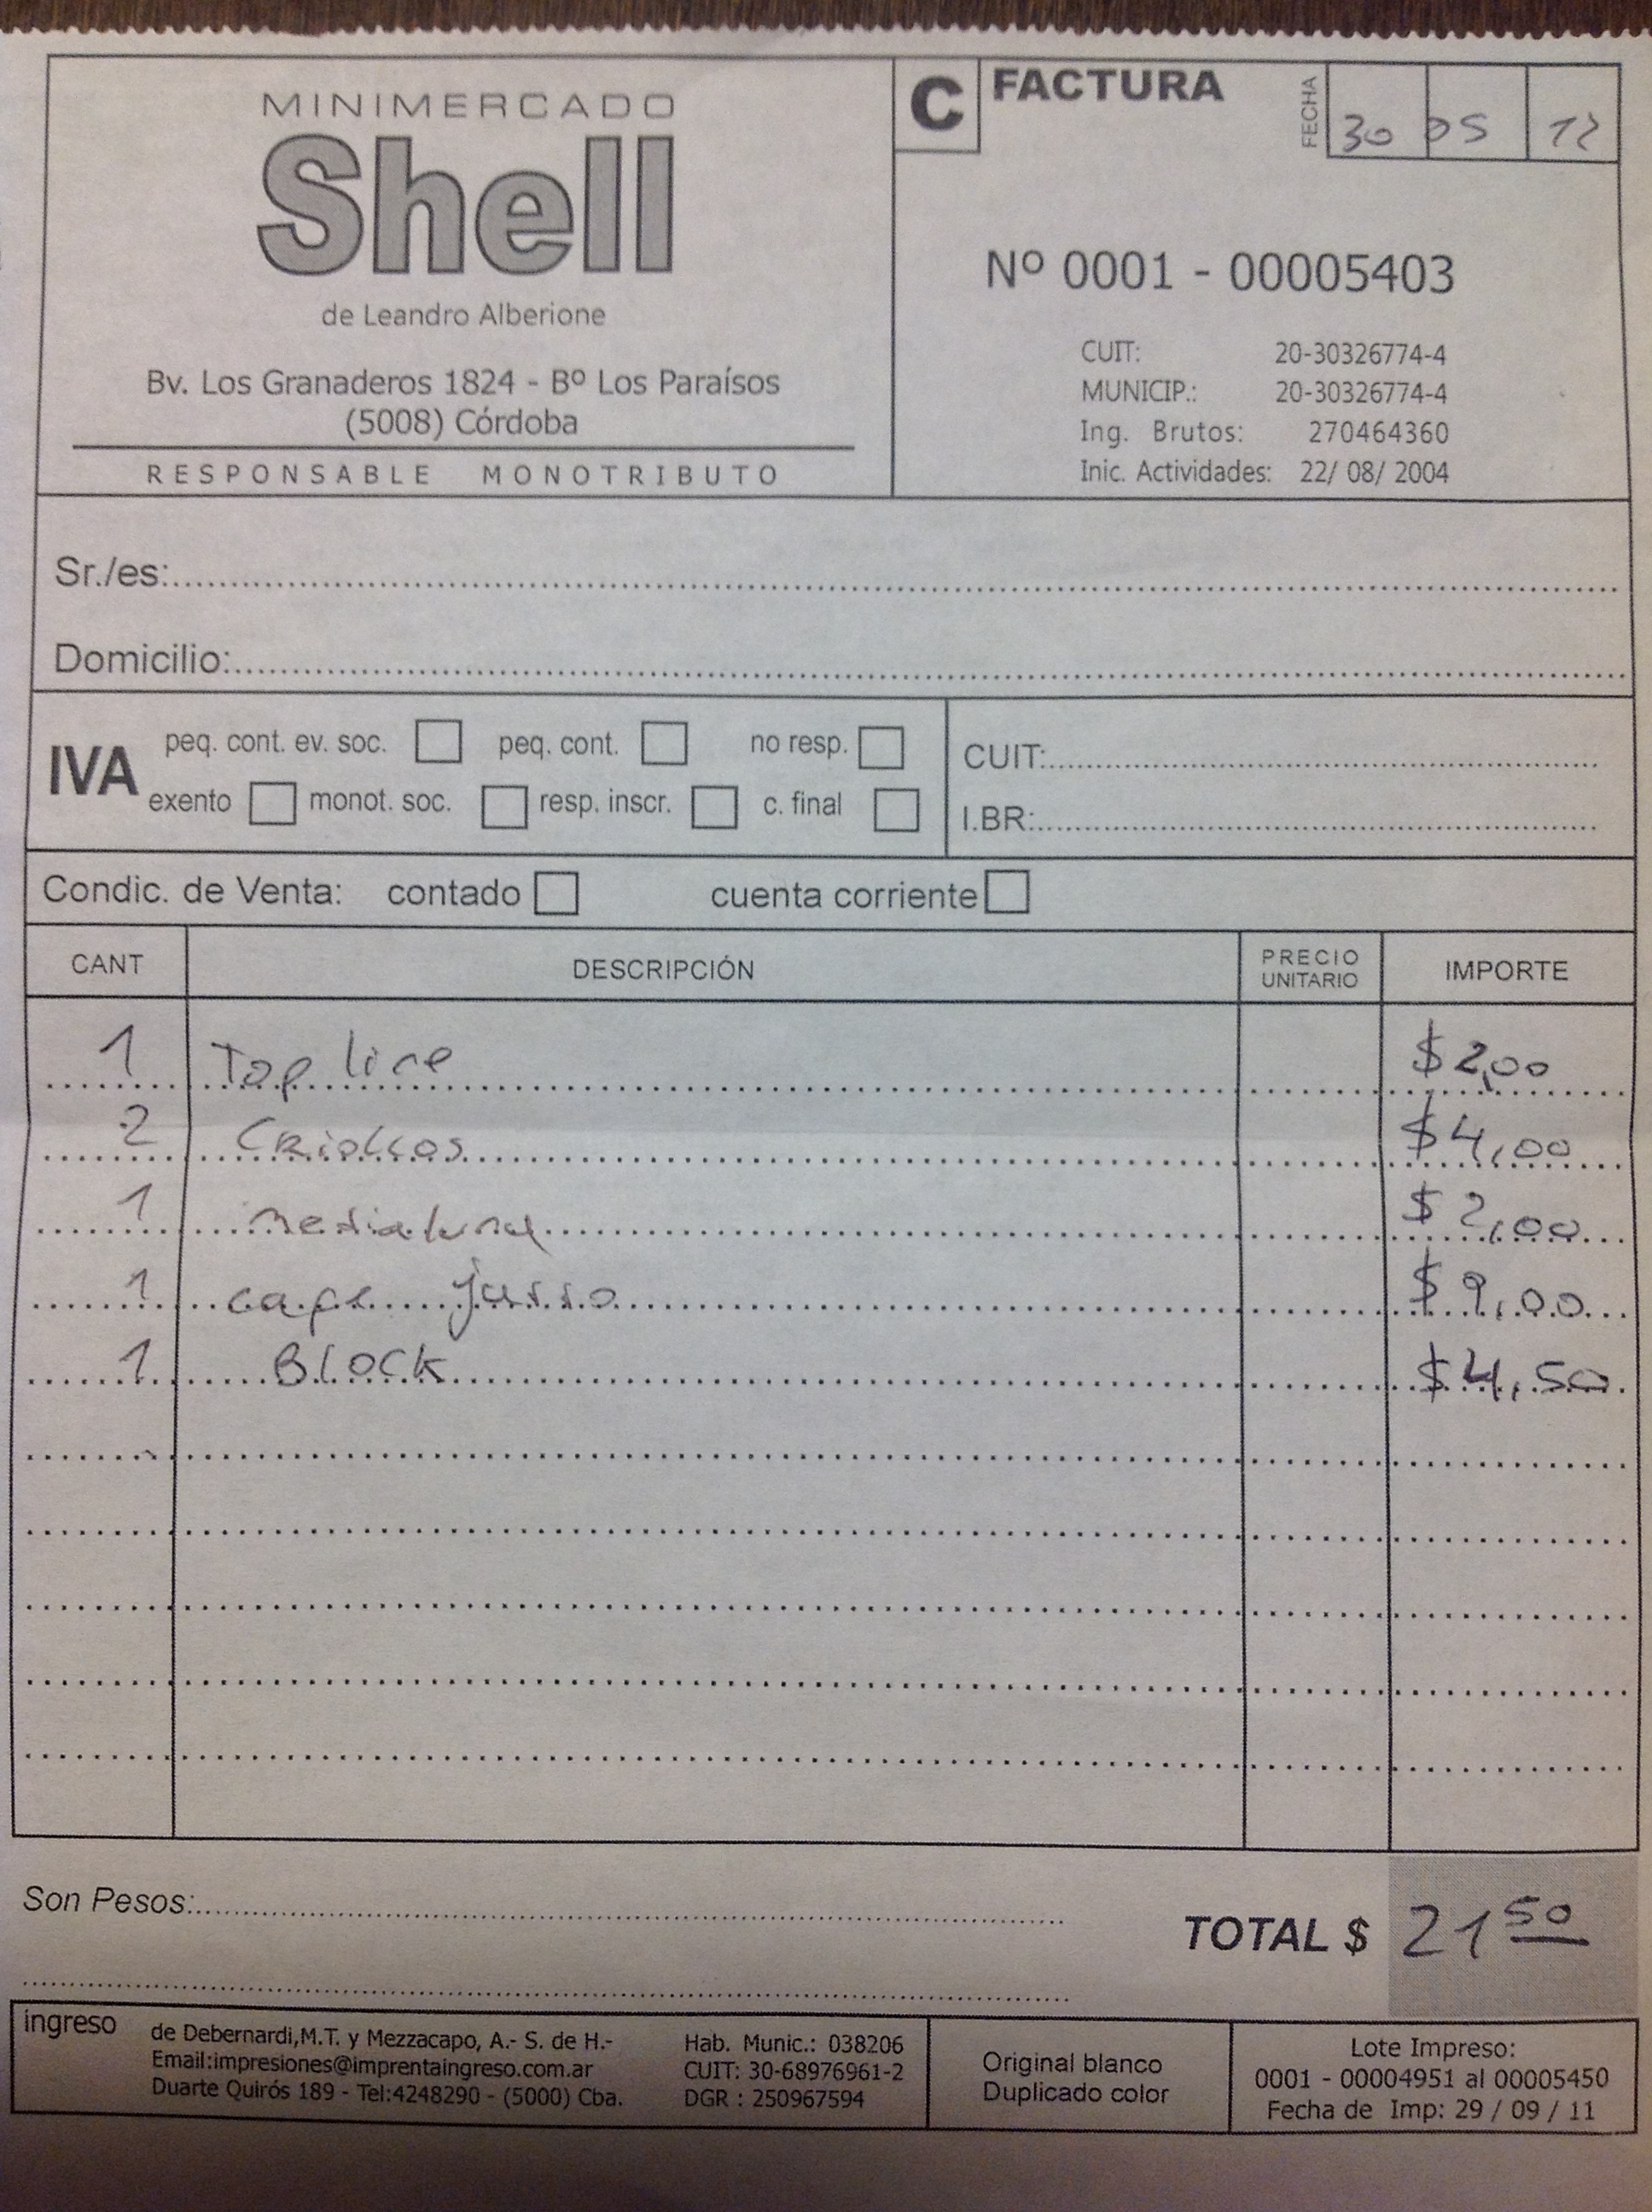 MINIMERCADO
Shell
de Leandro Alberione
Bv. Los Granaderos 1824 - Bº Los Paraísos
(5008) Córdoba
RESPONSABLE MONOTRIBUTO
C FACTURA
FECHA 30 05 12
Nº 0001 - 00005403
CUIT: 20-30326774-4
MUNICIP.: 20-30326774-4
Ing. Brutos: 270464360
Inic. Actividades: 22/ 08/ 2004
Sr./es:
Domicilio:
IVA peq. cont. ev. soc. peq. cont. no resp.
exento monot. soc. resp. inscr. c. final
CUIT:
I.BR:
Condic. de Venta: contado cuenta corriente
CANT DESCRIPCIÓN PRECIO UNITARIO IMPORTE
1 Top line $ 2,00
2 CRiollos $ 4,00
1 medialuna $ 2,00
1 cafe $ 9,00
1 BlOCK $ 4,50
Son Pesos:
TOTAL $ 21 50
ingreso
de Debernardi,M.T. y Mezzacapo, A.- S. de H.-
Email:impresiones@imprentaingreso.com.ar
Duarte Quirós 189 - Tel:4248290 - (5000) Cba.
Hab. Munic.: 038206
CUIT: 30-68976961-2
DGR : 250967594
Original blanco
Duplicado color
Lote Impreso:
0001 - 00004951 al 00005450
Fecha de Imp: 29 / 09 / 11